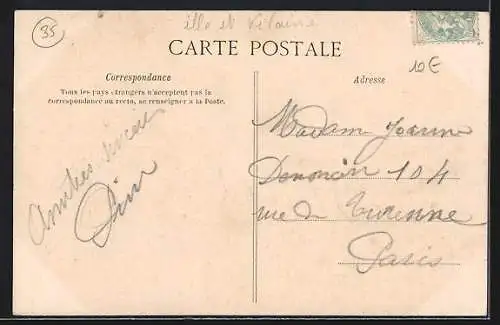 35
ille et Vilaine
CARTE POSTALE
10€
Correspondance
Tous les pays étrangers n'acceptent pas la
correspondance au recto, se renseigner à la Poste.
Amitiés
Adresse
Madam Jeanne
104
rue de Turenne
Paris